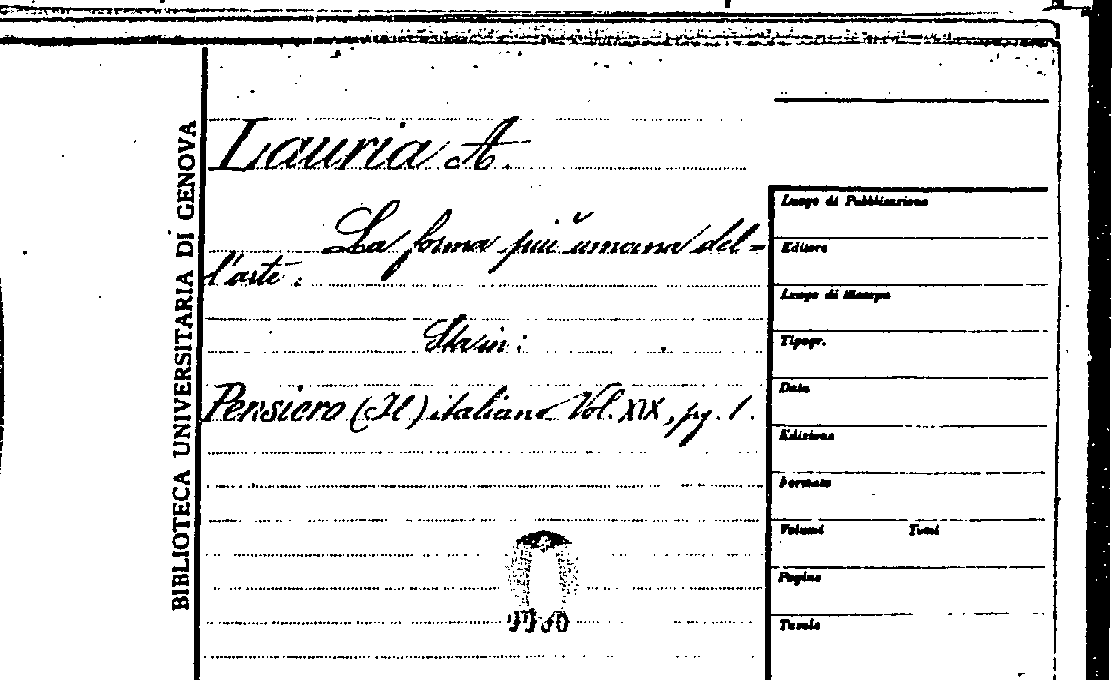 BIBLIOTECA UNIVERSITARIA DI GENOVA
Lauria A.
La forma più umana del-
l'arte.
Sta in:
Pensiero (Il) italiano Vol. XIX, pg. 1.
Luogo di Pubblicazione
Editore
Luogo di Stampa
Tipogr.
Data
Edizione
Formato
Volumi Tomi
Pagine
Tavole